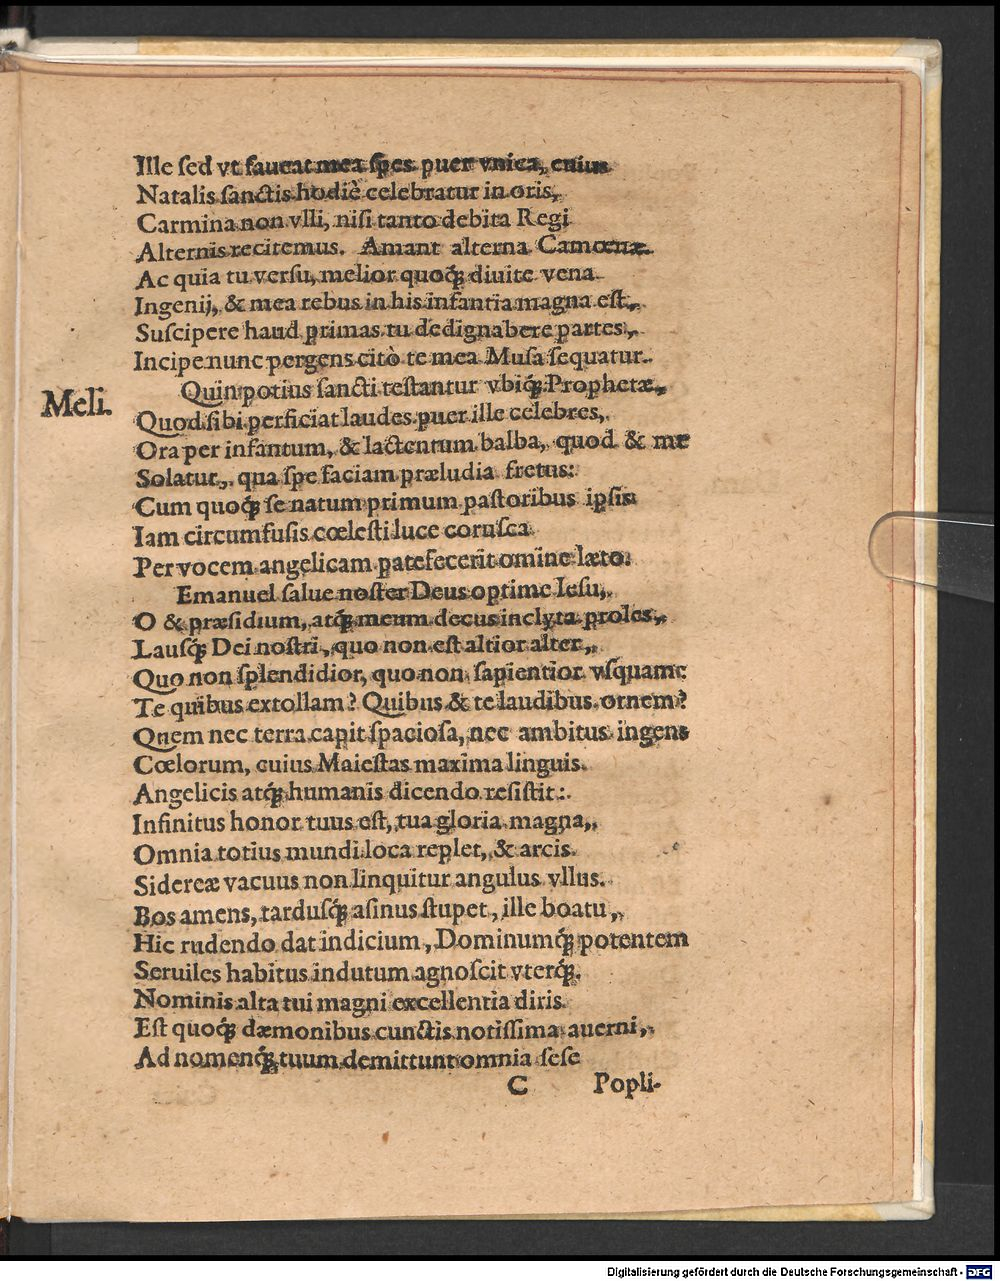 Ille ſed vt faueat mea ſpes puer vnica, cuius
Natalis ſanctis hodiè celebratur in oris,
Carmina non vlli, niſi tanto debita Regi
Alternis recitemus. Amant alterna Camœnæ.
Ac quia tu verſu, melior quoq́; diuite vena
Ingenij, & mea rebus in his infantia magna eſt,
Suſcipere haud primas tu dedignabere partes,
Incipe nunc pergens citò te mea Muſa ſequatur.
Meli. Quin potius ſancti teſtantur vbiq́; Prophetæ,
Quod ſibi perficiat laudes puer ille celebres,
Ora per infantum, & lactentum balba, quod & me
Solatur, qua ſpe faciam præludia fretus:
Cum quoq́; ſe natum primum paſtoribus ipſis
Iam circumfuſis cœleſti luce coruſca
Per vocem angelicam patefecerit omine læto.
Emanuel ſalue noſter Deus optime Ieſu,
O & præſidium, atq́; meum decus inclyta proles,
Lauſq́; Dei noſtri, quo non eſt altior alter,
Quo non ſplendidior, quo non ſapientior vſquam:
Te quibus extollam? Quibus & te laudibus ornem?
Quem nec terra capit ſpacioſa, nec ambitus ingens
Cœlorum, cuius Maieſtas maxima linguis
Angelicis atq́; humanis dicendo reſiſtit:
Infinitus honor tuus eſt, tua gloria magna,
Omnia totius mundi loca replet, & arcis
Sidereæ vacuus non linquitur angulus vllus.
Bos amens, tarduſq́; aſinus ſtupet, ille boatu,
Hic rudendo dat indicium, Dominumq́; potentem
Seruiles habitus indutum agnoſcit vterq́;.
Nominis alta tui magni excellentia diris
Eſt quoq́; dæmonibus cunctis notiſſima auerni,
Ad nomenq́; tuum demittunt omnia ſeſe
C Popli-
Digitalisierung gefördert durch die Deutsche Forschungsgemeinschaft - DFG